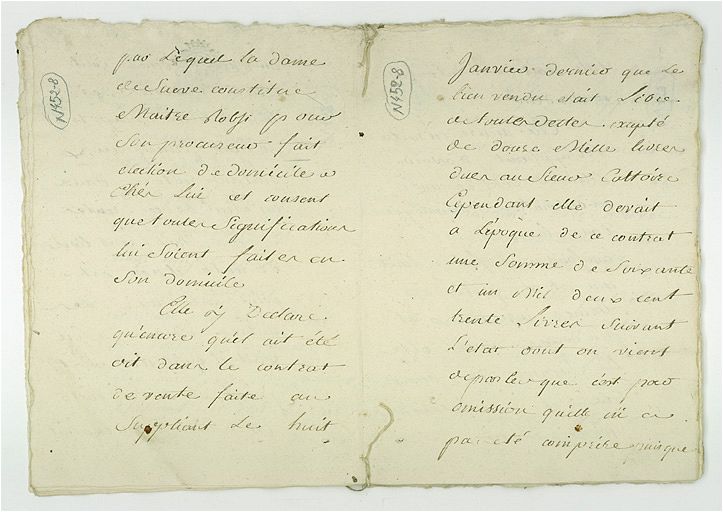 N452-8
par Lequel la dame
de Sueve constitue
Maitre Robsi pour
Son procureur fait
election de domicile
Chés Lui et consent
que toutes Significations
lui Soient faites en
Son domicile
Elle y Declare
qu'encore qu'el ait été
dit dans le contrat
de vente faite au
Suppliant Le huit
N452-8
Janvier dernier que Le
bien vendu etait Libre
de toutes dettes excepté
de douze Mille livres
dues au Sieur
Cependant elle devait
a L'époque de ce contrat
une Somme de Soixante
et un Mil deux cent
trente Livres Suivant
L'etat dont on vient
de parler que c'est par
omission qu'elle n'i a
pas été comprise puisque